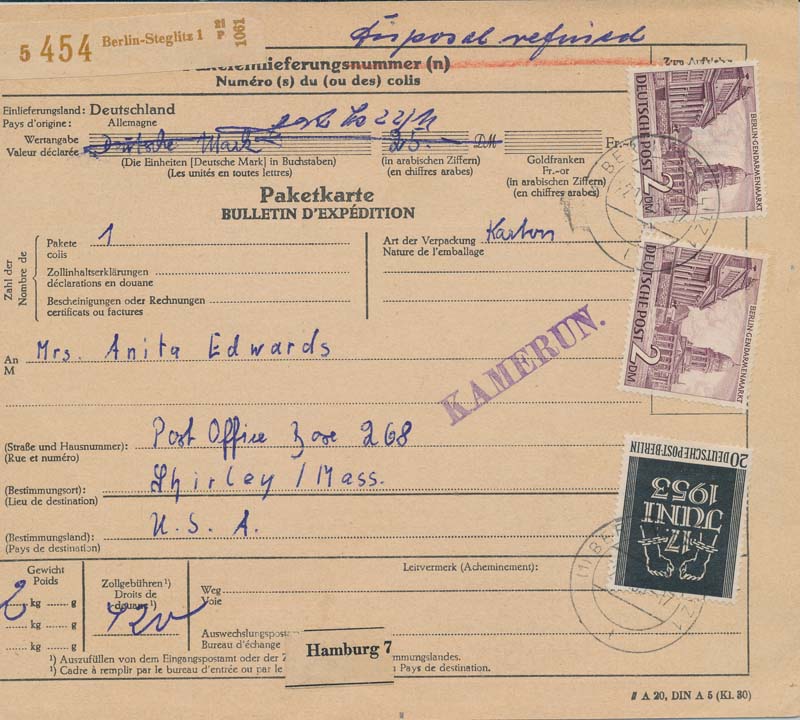 5 454 Berlin-Steglitz 1 21 P 1061
Disposal refused
nummer (n)
Numéro (s) du (ou des) colis
Einlieferungsland: Deutschland
Pays d'origine: Allemagne
Wertangabe Deutsche Mark 25.- DM Fr.-
Valeur déclarée
(Die Einheiten [Deutsche Mark] in Buchstaben)
(Les unités en toutes lettres)
(in arabischen Ziffern)
(en chiffres arabes)
Goldfranken
Fr.-or
(in arabischen Ziffern)
(en chiffres arabes)
Paketkarte
BULLETIN D'EXPÉDITION
Zahl der
Nombre de
Pakete 1
colis
Zollinhaltserklärungen
déclarations en douane
Bescheinigungen oder Rechnungen
certificats ou factures
Art der Verpackung Karton
Nature de l'emballage
An Mrs. Anita Edwards
M
KAMERUN.
(Straße und Hausnummer): Post Office Box 268
(Rue et numéro)
(Bestimmungsort): Shirley / Mass.
(Lieu de destination)
(Bestimmungsland): U. S. A.
(Pays de destination)
Gewicht
Poids
2 kg g
kg g
kg g
Zollgebühren¹)
Droits de
douane¹)
Leitvermerk (Acheminement):
Weg
Voie
Auswechslungspost
Bureau d'échange
Hamburg 7
¹) Auszufüllen von dem Eingangspostamt oder der Z mmungslandes.
¹) Cadre à remplir par le bureau d'entrée ou par le Pays de destination.
A 20, DIN A 5 (Kl. 30)
DEUTSCHE POST
2 DM
BERLIN-GENDARMENMARKT
DEUTSCHE POST
2 DM
BERLIN-GENDARMENMARKT
20 DEUTSCHE POST-BERLIN
17.
JUNI
1953